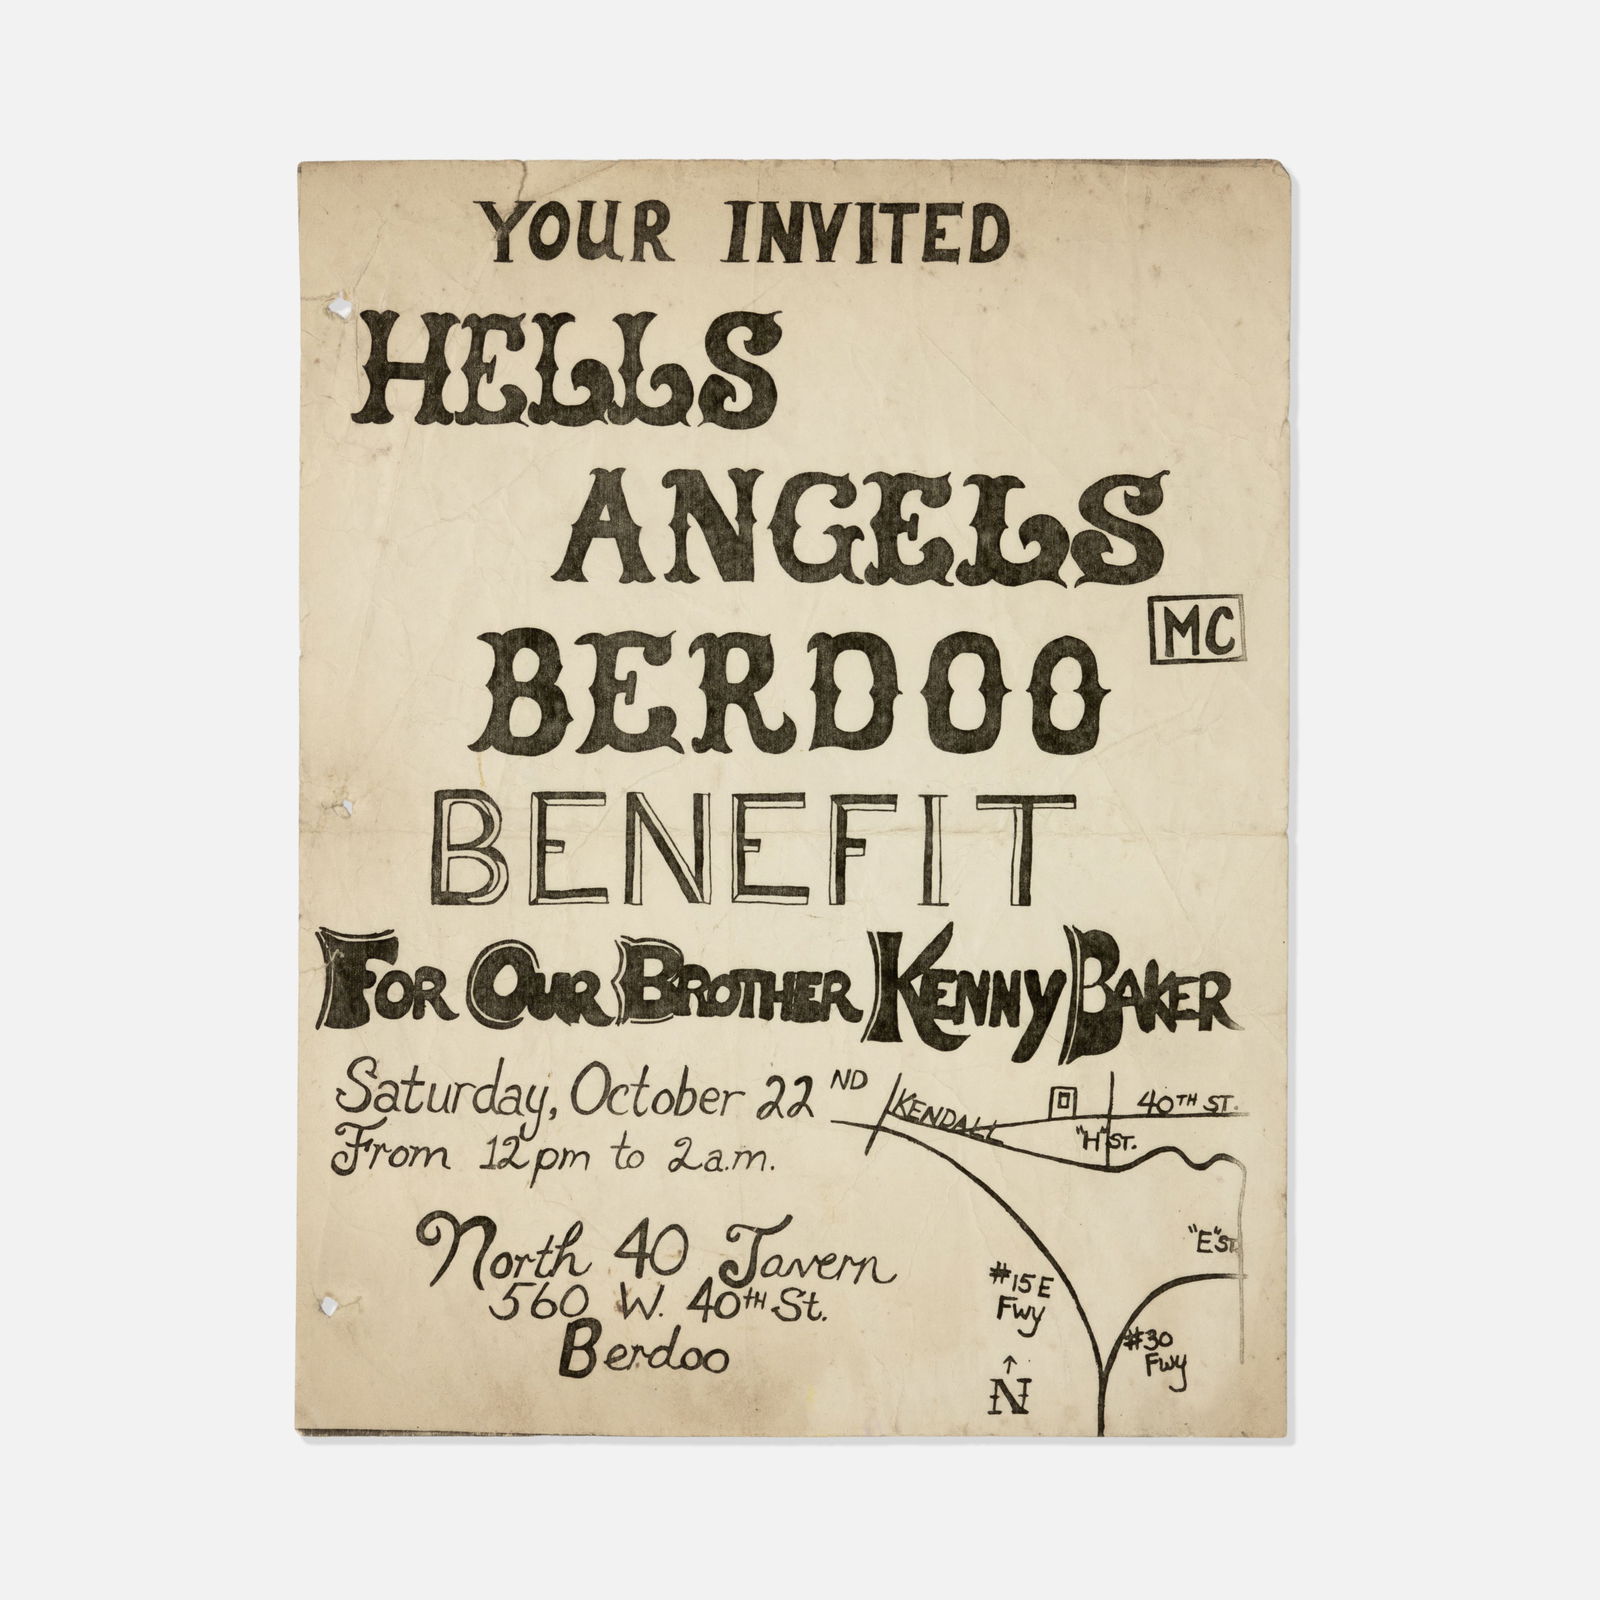 YOUR INVITED
HELLS
ANGELS
MC
BERDOO
BENEFIT
FOR OUR BROTHER KENNY BAKER
Saturday, October 22ND
From 12pm to 2a.m.
North 40 Tavern
560 W. 40TH St.
Berdoo
KENDALL
40TH ST.
"H" ST.
"E" ST.
#15E
Fwy
#30
Fwy
N